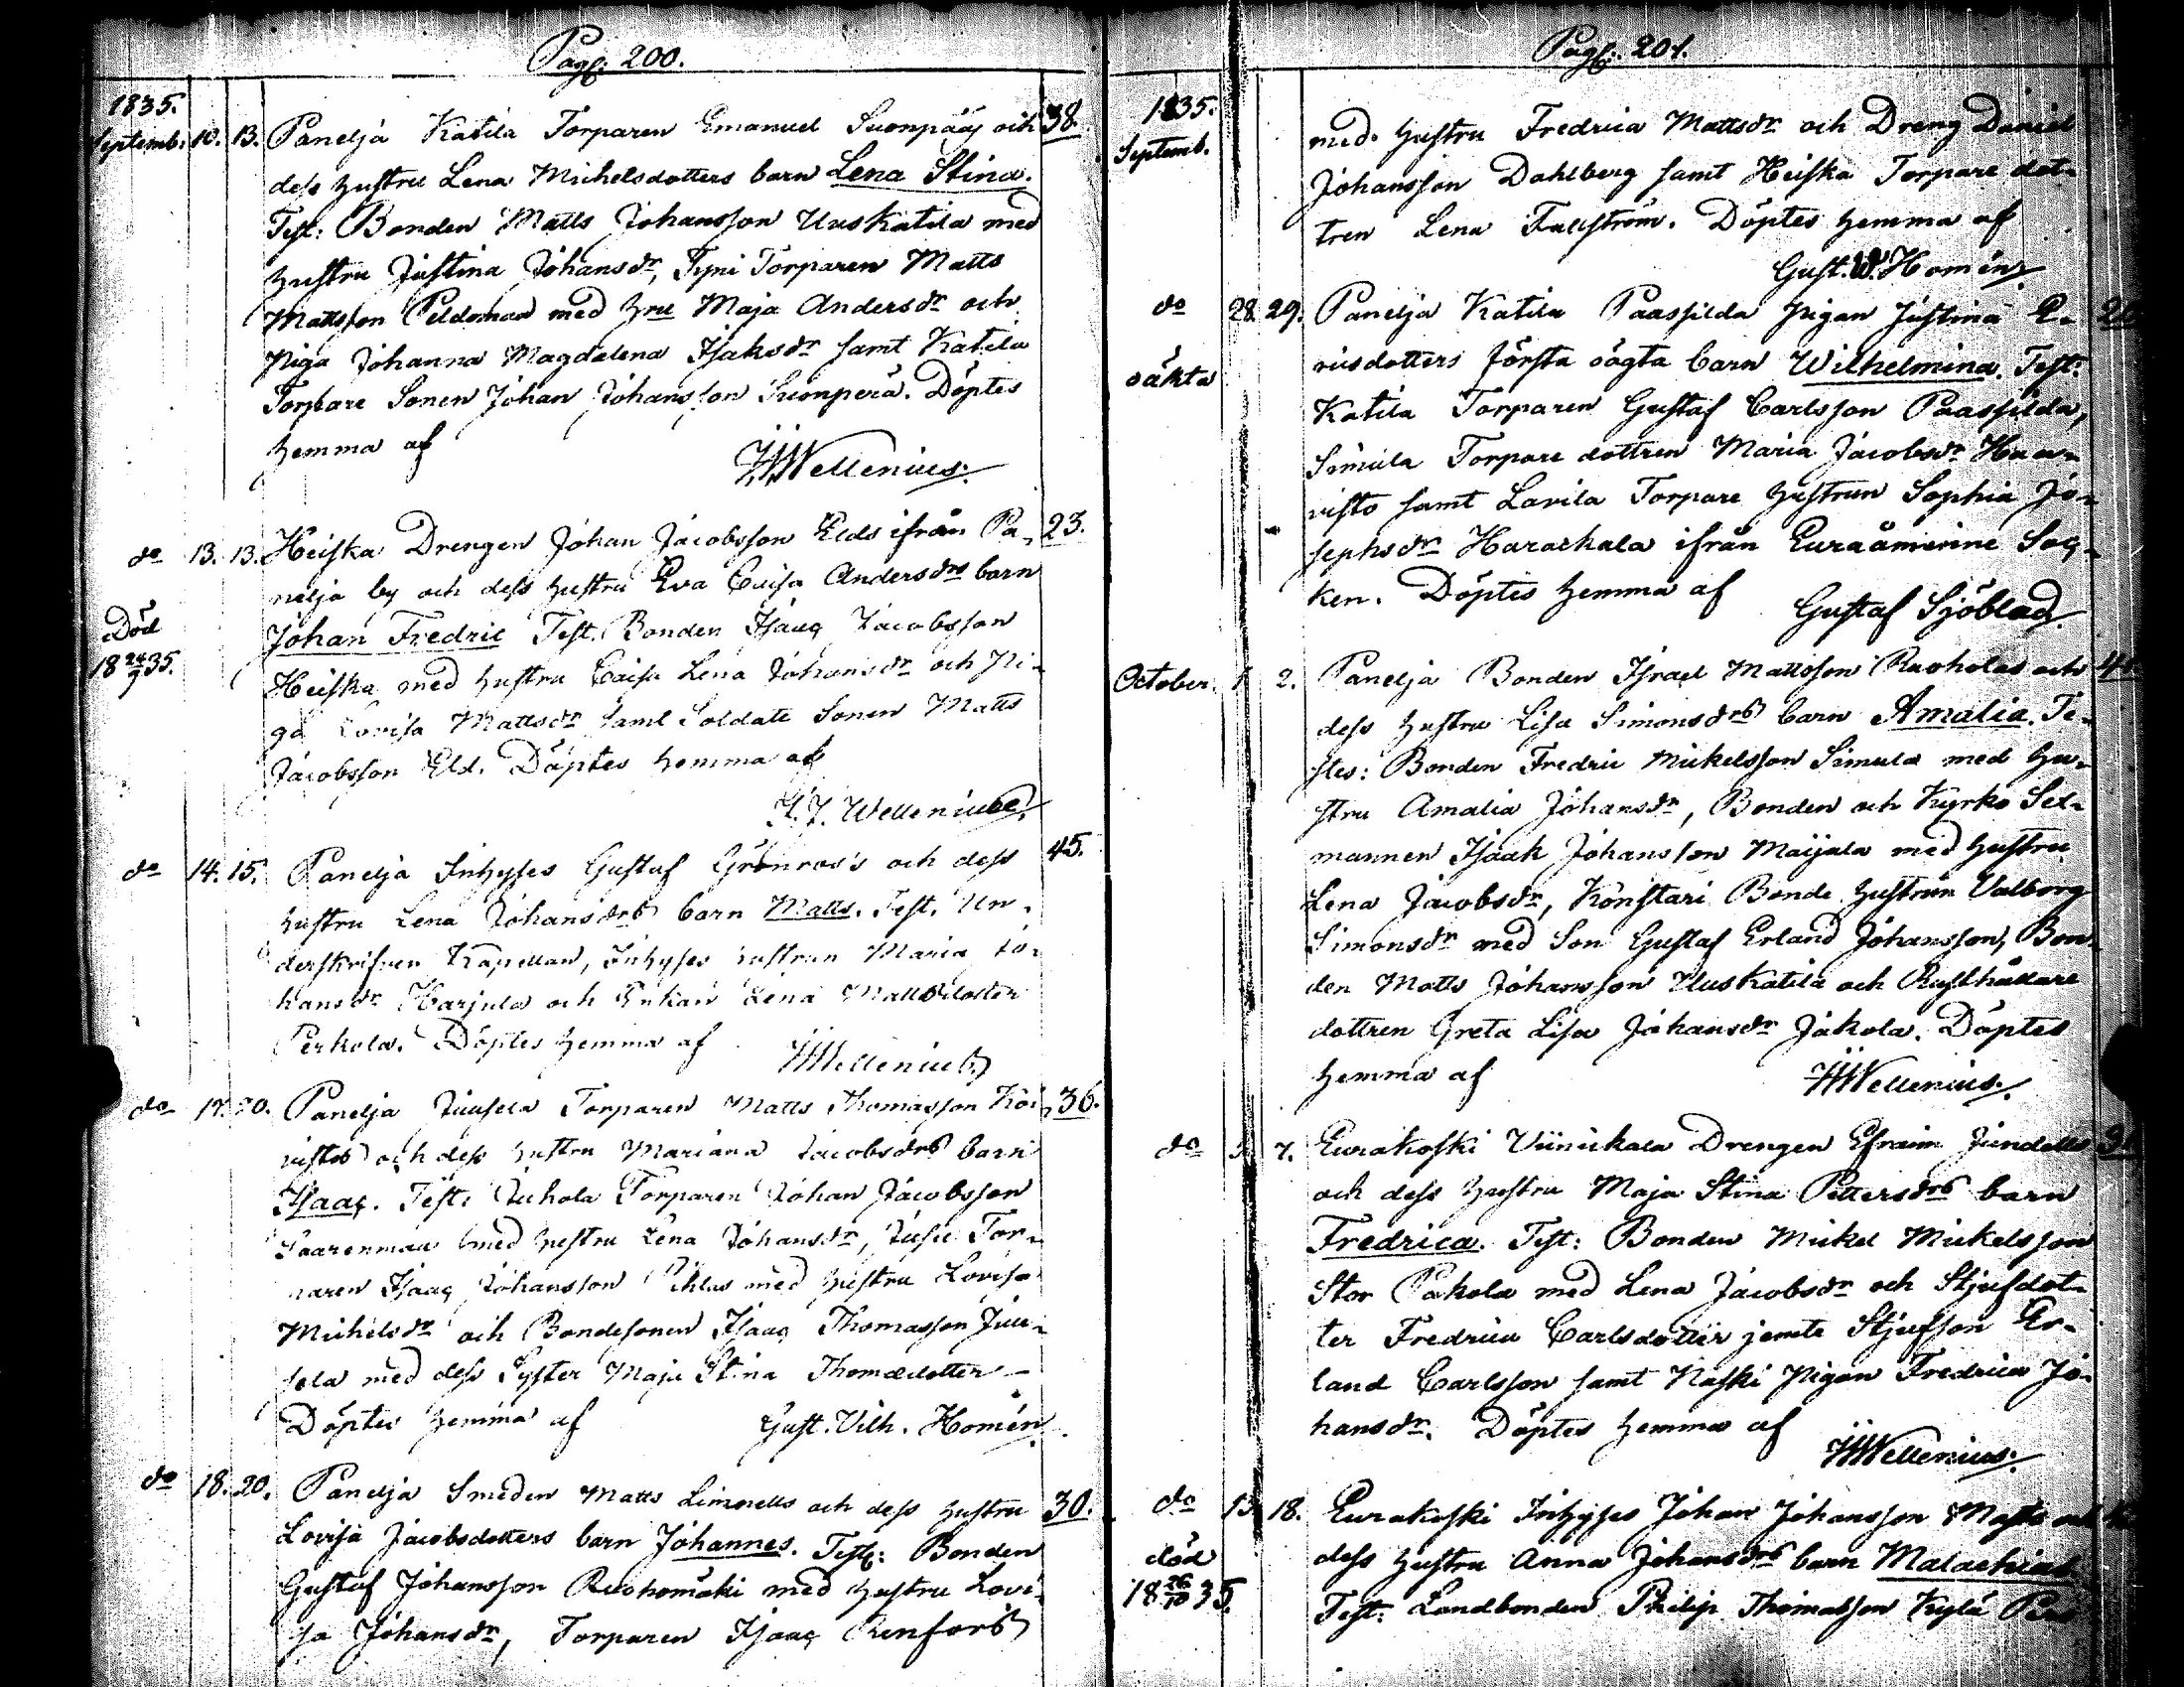 Pag: 200.
1835.
Septemb. 10. 13. Panelja Katila Torparen Emanuel Suonpääs och 38.
dess hustru Lena Michelsdotters barn Lena Stina.
Test: Bonden Matts Johansson Uuskatila med
hustru Justina Johansdr, Typi Torparen Matts
Mattsson Peldomaa med hru Maja Andersdr och
Piga Johanna Magdalena Isaksdr samt Katila
Torpare Sonen Johan Johansson Suonperä. Döptes
hemma af
Wellenius.
do 13. 13. Heiska Drengen Johan Jacobsson Elds ifrån Pa- 23.
nelja by och dess hustru Eva Caisa Andersdrs barn
Död
Johan Fredric Test. Bonden Isaac Jacobsson
18 24/9 35.
Heiska med hustru Caisa Lena Johansdr och Pi-
ga Lovisa Mattsdr samt Soldate Sonen Matts
Jacobsson Eld. Döptes hemma af
H. J. Wellenius.
do 14. 15. Panelja Inhyses Gustaf Grönroos's och dess 45.
hustru Lena Johansdrs barn Matts. Test. Un-
derskrifven Kapellan, Inhyses hustrun Maria Jo-
hansdr Harjula och Enkan Lena Mattsdotter
Perkola. Döptes hemma af
Wellenius
do 17. 20. Panelja Juusela Torparen Matts Thomasson Koi- 36.
vistos och dess hustru Mariana Jacobsdrs barn
Isaac. Test: Juhola Torparen Johan Jacobsson
Saarenmaa med hustru Lena Johansdr, Jusu Tor-
paren Isaac Johansson Pihlas med hustru Lovisa
Michelsdr och Bondesonen Isaac Thomasson Juu-
sela med dess Syster Maja Stina Thomædotter
Döptes hemma af Gust. Vilh. Homén.
do 18. 20. Panelja Smeden Matts Limnells och dess hustru 30.
Lovisa Jacobsdotters barn Johannes. Test: Bonden
Gustaf Johansson Ruohomäki med hustru Lovi-
sa Johansdr, Torparen Isaac Renfors
Pag: 201.
1835.
Septemb.
med hustru Fredrica Mattsdr och Dreng Daniel
Johansson Dahlberg samt Heiska Torpare dot-
tren Lena Fallström. Döptes hemma af
Gust. W. Homén.
do 28. 29. Panelja Katila Paassilda Pigan Justina E-
oäkta
ricsdotters första oägta barn Wilhelmina. Test:
Katila Torparen Gustaf Carlsson Paassilda,
Simula Torpare dottren Maria Jacobsdr Haa-
visto samt Lavila Torpare hustrun Sophia Jo-
sephsdr Harackala ifrån Euraåminne Sog-
ken. Döptes hemma af
Gustaf Sjöblad.
October. 1. 2. Panelja Bonden Israel Mattsson Ruoholas och
dess hustru Lisa Simonsdrs barn Amalia. Te-
stes: Bonden Fredric Mickelsson Simula med hu-
stru Amalia Johansdr, Bonden och Kyrko Sex-
mannen Isaak Johansson Maijala med hustru
Lena Jacobsdr, Konstari Bonde hustrun Valborg
Simonsdr med Son Gustaf Erland Johansson, Bon-
den Matts Johansson Uuskatila och Rusthållare
dottren Greta Lisa Johansdr Jakola. Döptes
hemma af
Wellenius.
do 5. 7. Eurakoski Viinickala Drengen Efraim Jundells
och dess hustru Maja Stina Pettersdrs barn
Fredrica. Test: Bonden Mickel Mickelsson
Stor Pakola med Lena Jacobsdr och Stjufdot-
ter Fredrica Carlsdotter jemte Stjufson Er-
land Carlsson samt Naski Pigan Fredrica Jo-
hansdr. Döptes hemma af
Wellenius.
do 13. 18. Eurakoski Inhyses Johan Johansson
död
dess hustru Anna Johansdrs barn Malachias
18 26/10 35.
Test: Landbonden Philip Thomasson Kylä